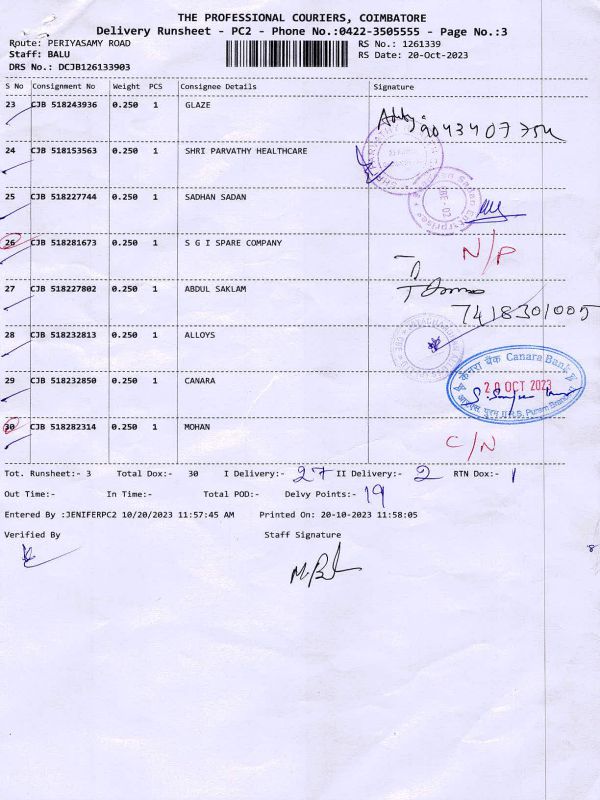 THE PROFESSIONAL COURIERS, COIMBATORE
Delivery Runsheet - PC2 - Phone No.:0422-3505555 - Page No.:3
Route: PERIYASAMY ROAD RS No.: 1261339
Staff: BALU RS Date: 20-Oct-2023
DRS No.: DCJB126133903
S No Consignment No Weight PCS Consignee Details Signature
23 CJB 518243936 0.250 1 GLAZE
24 CJB 518153563 0.250 1 SHRI PARVATHY HEALTHCARE
25 CJB 518227744 0.250 1 SADHAN SADAN
CBE - 02
26 CJB 518281673 0.250 1 S G I SPARE COMPANY N/P
27 CJB 518227802 0.250 1 ABDUL SAKLAM
7418301005
28 CJB 518232813 0.250 1 ALLOYS
29 CJB 518232850 0.250 1 CANARA
केनरा बैंक Canara Bank
20 OCT 2023
30 CJB 518282314 0.250 1 MOHAN C/N
Tot. Runsheet:- 3 Total Dox:- 30 I Delivery:- 27 II Delivery:- 2 RTN Dox:- 1
Out Time:- In Time:- Total POD:- Delvy Points:- 19
Entered By :JENIFERPC2 10/20/2023 11:57:45 AM Printed On: 20-10-2023 11:58:05
Verified By Staff Signature